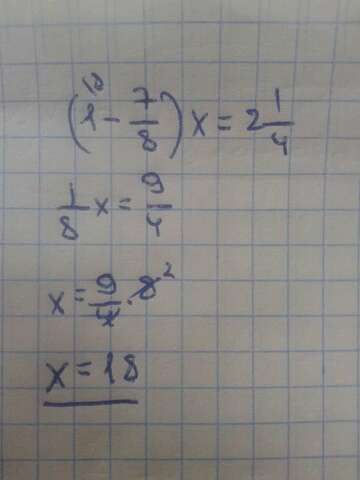 (1 - 7/8) x = 2 1/4
1/8 x = 9/4
x = 9/4 · 8 ²
x = 18